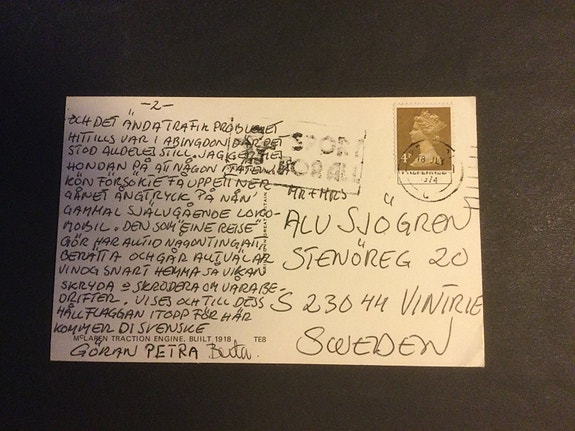 -2-
OCH DET ÄNDA TRAFIKPROBLEMET
HITTILLS VAR I ABINGDON DÄR DET
STOD ALLDELES STILL. JAG
HONDAN PÅ ATT NÅGON
KÖN FÖRSÖKTE FÅ UPP ETT NER
GÅNET ÅNGTRYCK PÅ NÅN
GAMMAL SJÄLVGÅENDE LOKO-
MOBIL. DEN SOM "EINE REISE"
GÖR HAR ALLTID NÅGONTING ATT
BERÄTTA OCH GÅR ALLT VÄL ÄR
VI NOG SNART HEMMA SÅ VI KAN
SKRYDA O SKRÖDERA OM VÅRA BE-
DRIFTER. VI SES OCH TILL DESS
HÅLL FLAGGAN I TOPP FÖR HÄR
KOMMER DI SVENSKE
McLAREN TRACTION ENGINE, BUILT 1918 TE8
GÖRAN PETRA
MR + MRS
ALV SJÖGREN
STENÖREG 20
S 23044 VINTRIE
SWEDEN